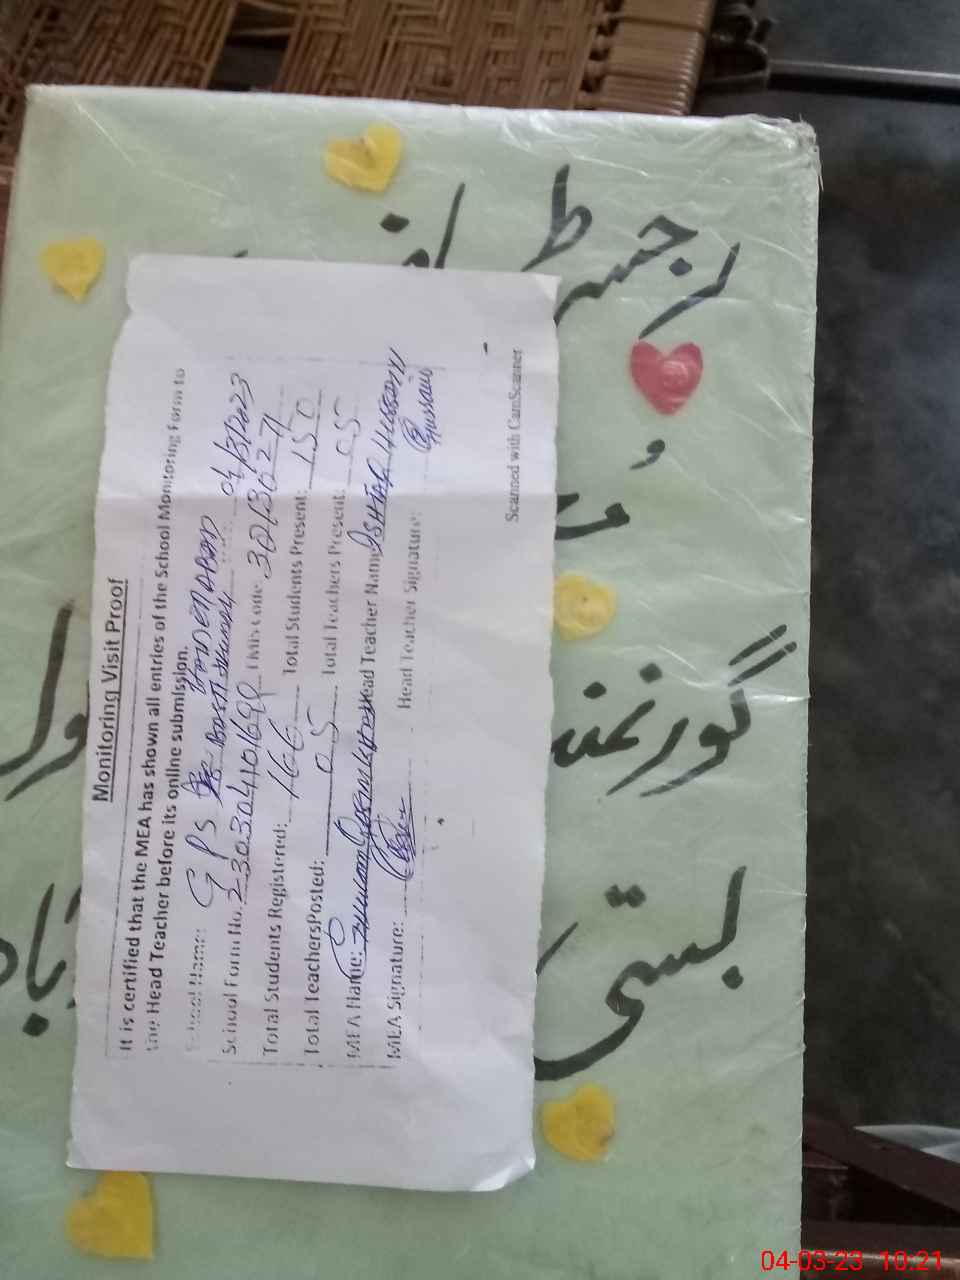 Monitoring Visit Proof
It is certified that the MEA has shown all entries of the School Monitoring Form to
the Head Teacher before its online submission.
School Name: GPS Basti
School Form No. 230304101699 EMIS Code: 30213027
Total Students Registered: 166 Total Students Present: 150
Total TeachersPosted: 05 Total Teachers Present: 05
MEA Name: Head Teacher Name: ISHTAQ HUSSAIN
MEA Signature: Head Teacher Signature: Hussain
Scanned with CamScanner
رجسٹر
گورنمنٹ
بستی
04-03-23 10:21